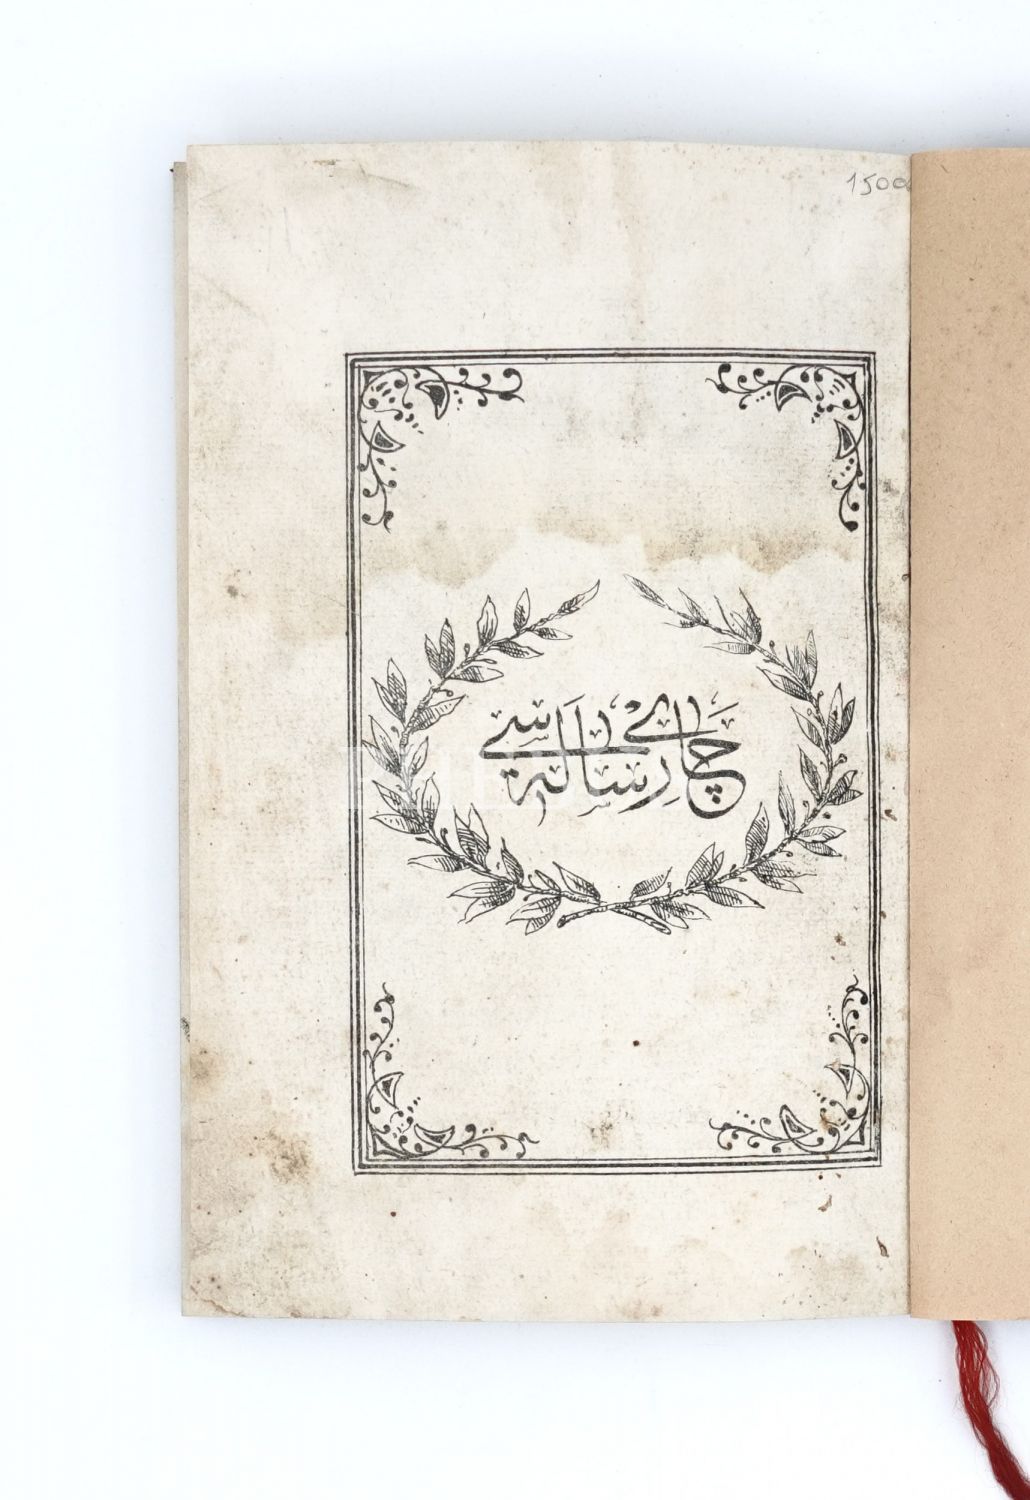 1500
چای رساله سی